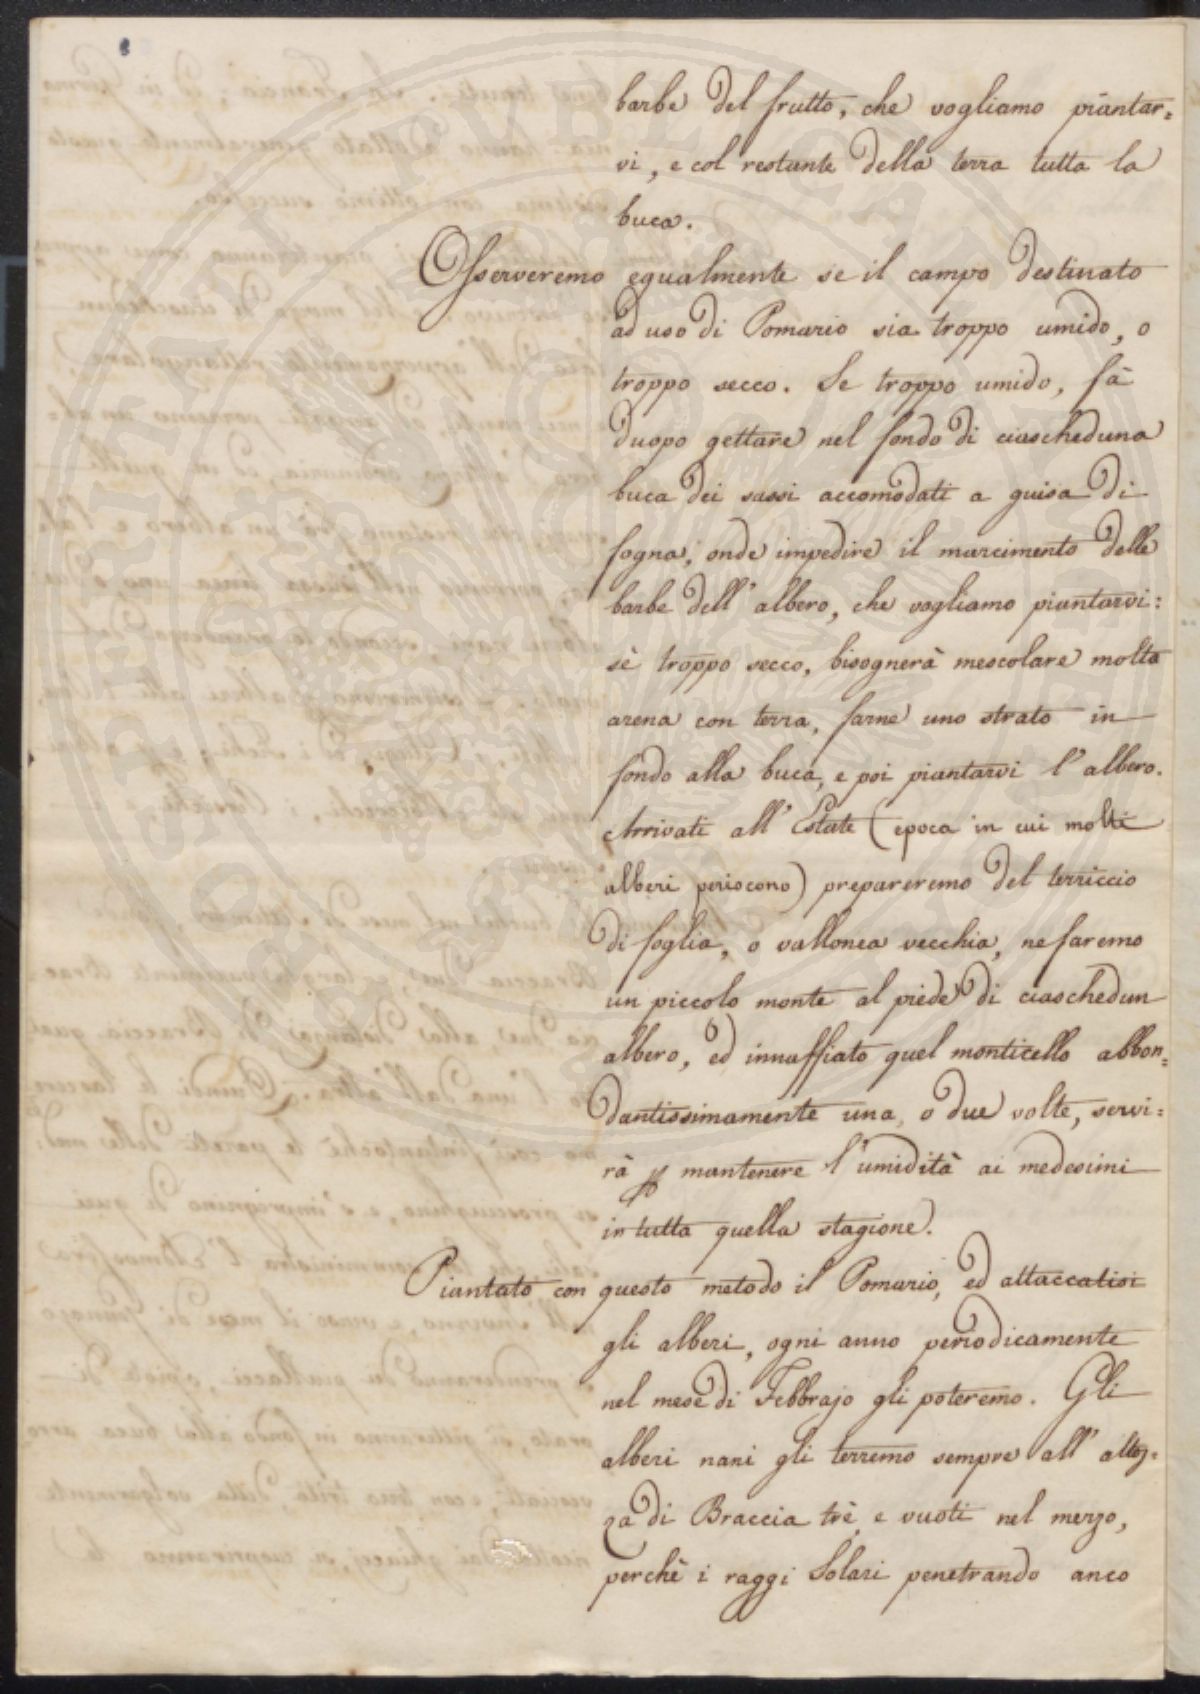 barbe del frutto, che vogliamo piantar=
vi, e col restante della terra tutta la
buca.
Osserveremo egualmente se il campo destinato
ad uso di Pomario sia troppo umido, o
troppo secco. Se troppo umido, fà
duopo gettare nel fondo di ciascheduna
buca dei sassi accomodati a guisa di
fogna, onde impedire il marcimento delle
barbe dell' albero, che vogliamo piantarvi:
sè troppo secco, bisognerà mescolare molta
arena con terra, farne uno strato in
fondo alla buca, e poi piantarvi l' albero.
Arrivati all' Estate (epoca in cui molti
alberi periscono) prepareremo del terriccio
di foglia, o vallonea vecchia, ne faremo
un piccolo monte al piede di ciaschedun
albero, ed innaffiato quel monticello abbon=
dantissimamente una, o due volte, servi=
rà p mantenere l'umidità ai medesimi
in tutta quella stagione.
Piantato con questo metodo il Pomario, ed attaccatisi
gli alberi, ogni anno periodicamente
nel mese di Febbrajo gli poteremo. Gli
alberi nani gli terremo sempre all' altez=
za di Braccia trè, e vuoti nel mezzo,
perchè i raggi Solari penetrando anco